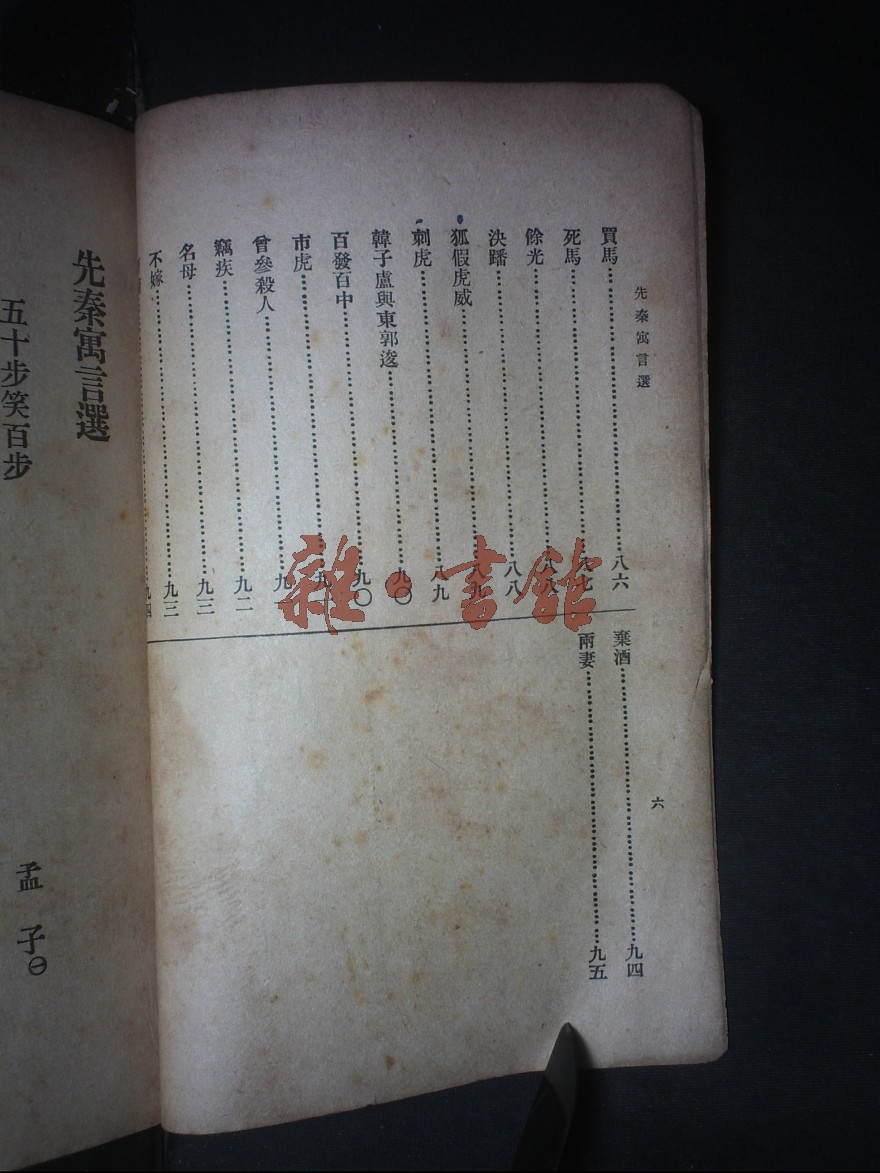 先秦寓言選
六
買馬……八六
死馬……八七
餘光……八八
決蹯……八八
狐假虎威……八九
刺虎……八九
韓子盧與東郭逡……九〇
百發百中……九〇
市虎……九一
曾參殺人……九一
竊疾……九二
名母……九三
不嫁……九三
……九四
棄酒……九四
兩妻……九五
先秦寓言選
五十步笑百步 孟子㊀
雜·書館